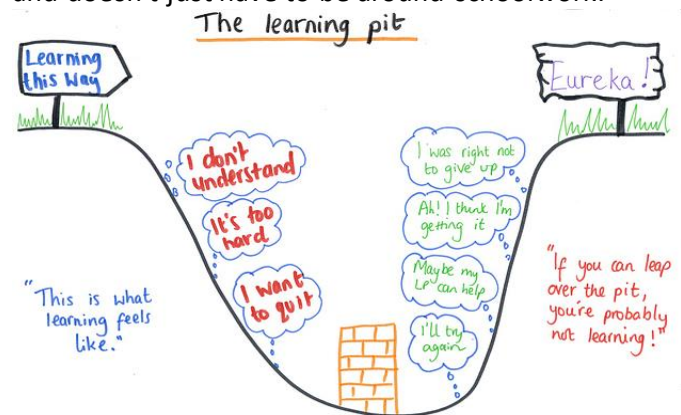 and doesn't just have to be around schoolwork.
The learning pit
Learning
this Way
Eureka!
I don't
understand
It's too
hard
I want
to quit
I was right not
to give up
Ah! I think I'm
getting it
Maybe my
LP can help
I'll try
again
"This is what
learning feels
like."
"If you can leap
over the pit,
you're probably
not learning!"